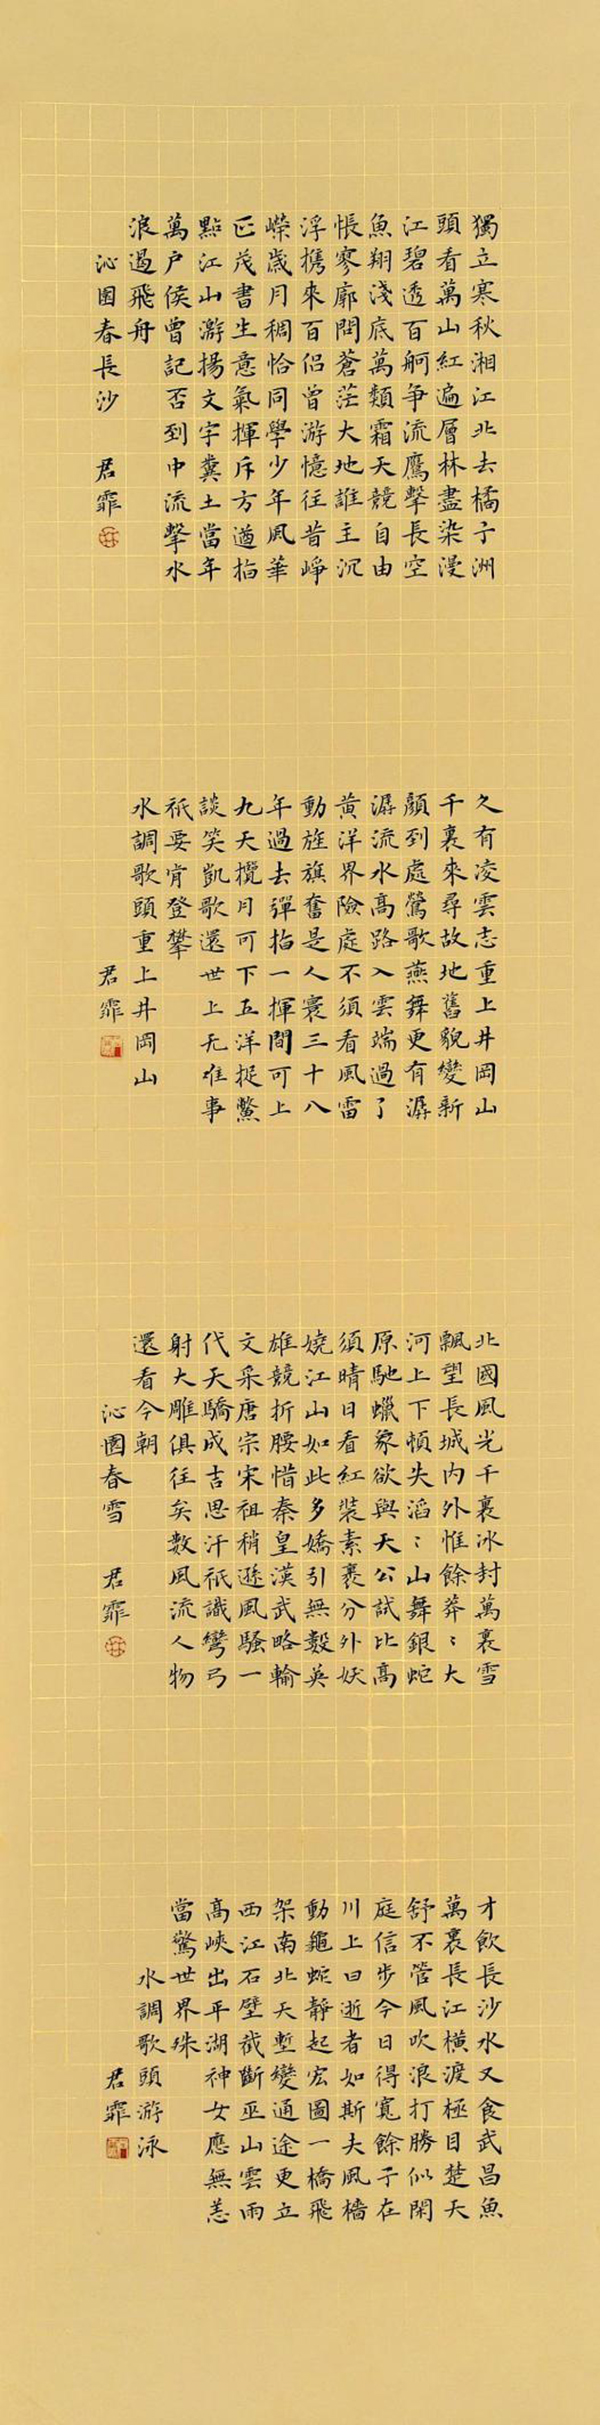 獨立寒秋湘江北去橘子洲
頭看萬山紅遍層林盡染漫
江碧透百舸争流鷹擊長空
魚翔淺底萬類霜天競自由
悵寥廓問蒼茫大地誰主沉
浮携來百侣曾游憶往昔崢
嶸歲月稠恰同學少年風華
正茂書生意氣揮斥方遒指
點江山激揚文字糞土當年
萬户侯曾記否到中流擊水
浪遏飛舟
沁園春長沙 君霏
久有凌雲志重上井岡山
千裏來尋故地舊貌變新
顔到處鶯歌燕舞更有潺
潺流水高路入雲端過了
黄洋界險處不須看風雷
動旌旗奮是人寰三十八
年過去彈指一揮間可上
九天攬月可下五洋捉鱉
談笑凱歌還世上无難事
衹要肯登攀
水調歌頭重上井岡山
君霏
北國風光千裏冰封萬裏雪
飄望長城内外惟餘莽〻大
河上下頓失滔〻山舞銀蛇
原馳蠟象欲與天公試比高
須晴日看紅裝素裹分外妖
嬈江山如此多嬌引無數英
雄競折腰惜秦皇漢武略輸
文采唐宗宋祖稍遜風騷一
代天驕成吉思汗衹識彎弓
射大雕俱往矣數風流人物
還看今朝
沁園春雪 君霏
才飲長沙水又食武昌魚
萬裏長江橫渡極目楚天
舒不管風吹浪打勝似閑
庭信步今日得寬餘子在
川上曰逝者如斯夫風檣
動龜蛇静起宏圖一橋飛
架南北天塹變通途更立
西江石壁截斷巫山雲雨
高峽出平湖神女應無恙
當驚世界殊
水調歌頭游泳
君霏